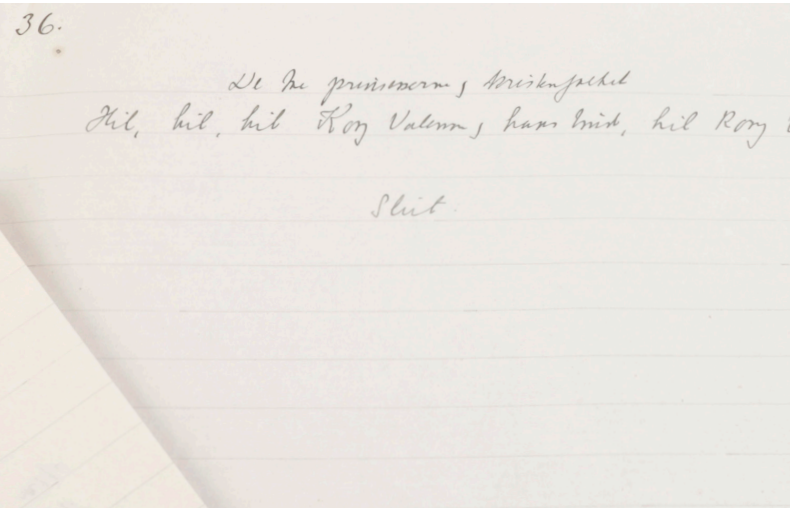 36.
De tre prinsesserne og
Hil, hil, hil Kong Valemon og hans brud, hil Kong
Slut.